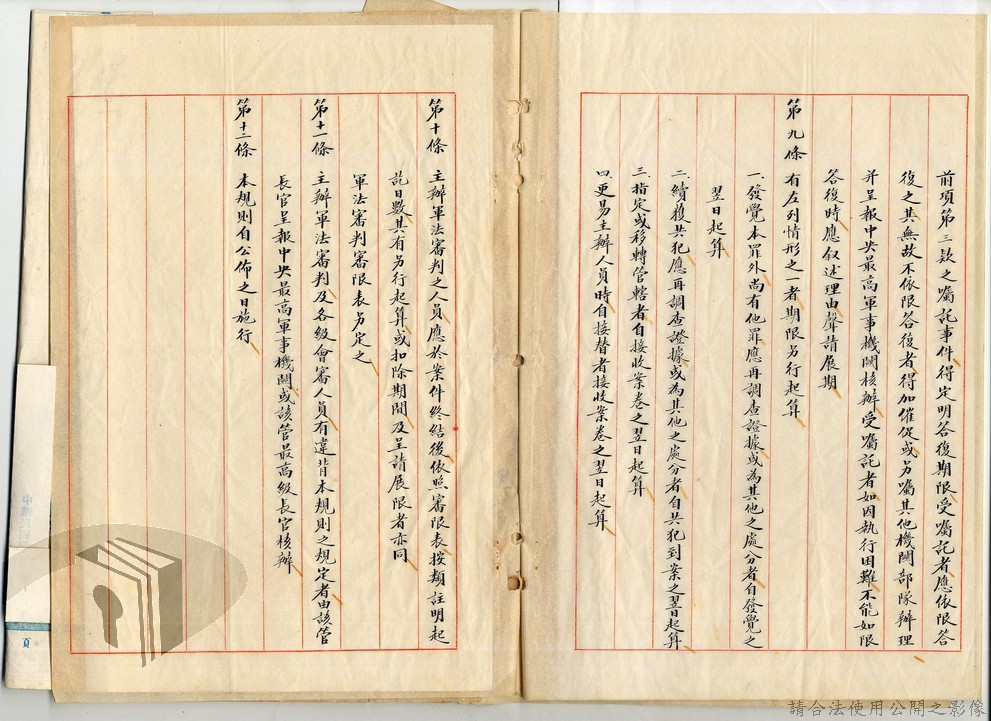 前項第三款之囑託事件得定明答復期限受囑託者應依限答
復之其無故不依限答復者得加催促或另囑其他機關部隊辦理
并呈報中央最高軍事機關核辦受囑託者如因執行困難不能如限
答復時應叙述理由聲請展期
第九條 有左列情形之一者期限另行起算
一、發覺本罪外尚有他罪應再調查證據或為其他之處分者自發覺之
翌日起算
二、續獲共犯應再調查證據或為其他之處分者自共犯到案之翌日起算
三、指定或移轉管轄者自接收案卷之翌日起算
四、更易主辦人員時自接替者接收案卷之翌日起算
第十條 主辦軍法審判之人員應於案件終結後依照審限表按類註明起
訖日數其有另行起算或扣除期間及呈請展限者亦同
軍法審判審限表另定之
第十一條 主辦軍法審判及各級會審人員有違背本規則之規定者由該管
長官呈報中央最高軍事機關或該管最高級長官核辦
第十二條 本規則自公佈之日施行
頁
請合法使用公開之影像